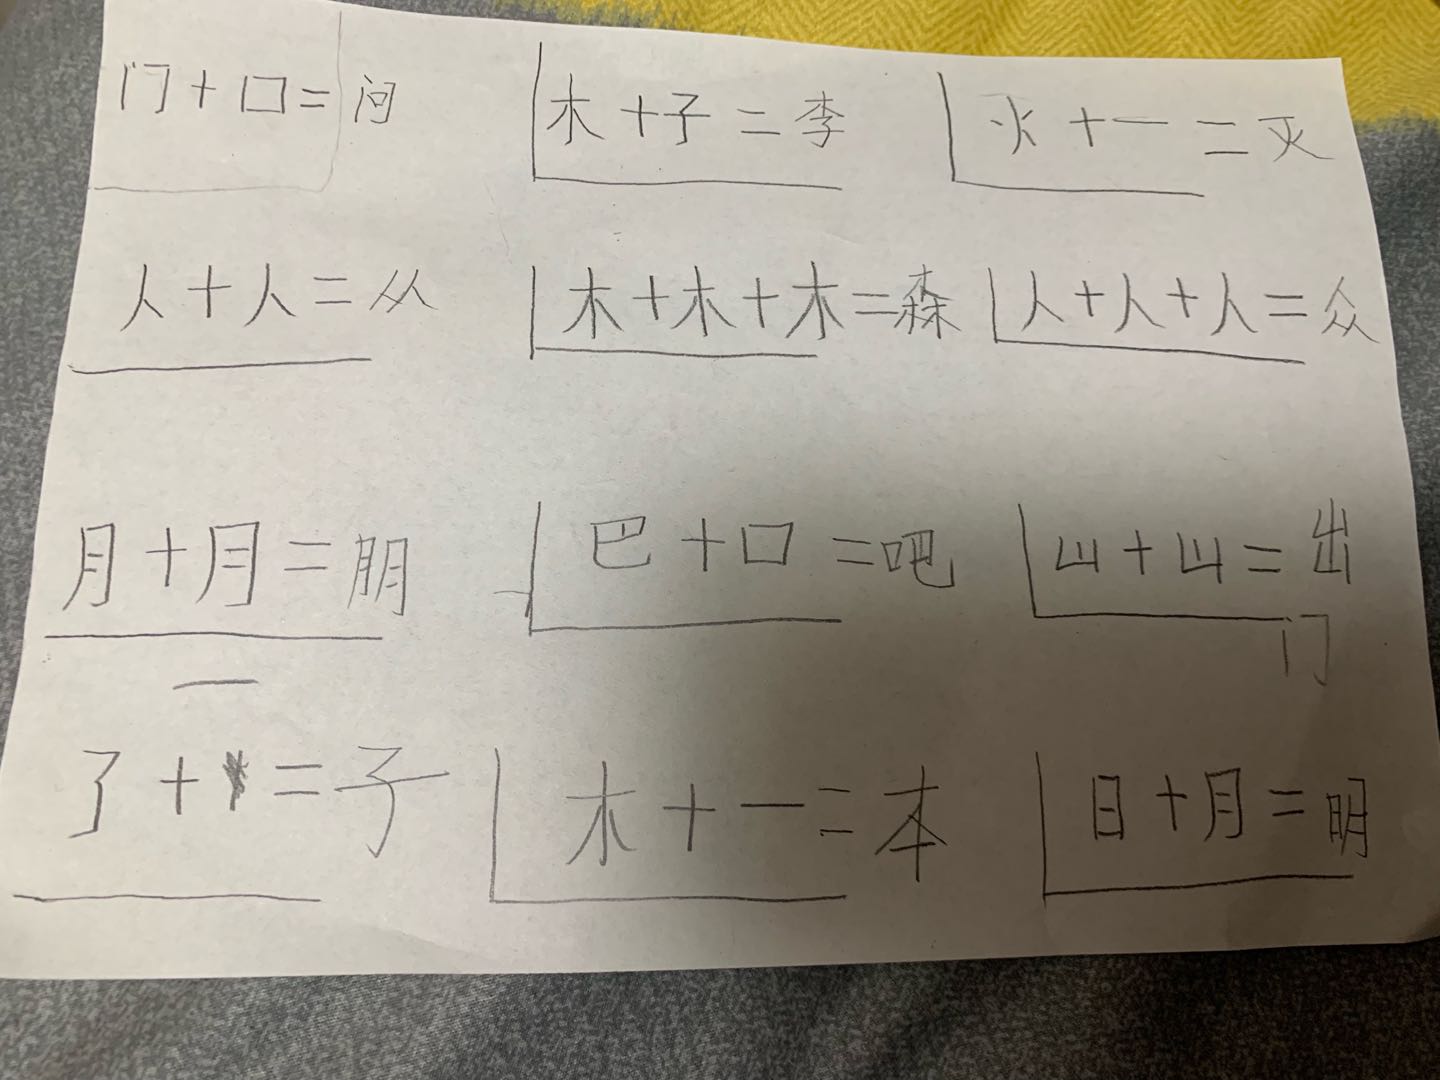 门+口=问 木+子=李 火+一=灭
人+人=从 木+木+木=森 人+人+人=众
月+月=朋 巴+口=吧 山+山=出
门
一
了+=子 木+一=本 日+月=明